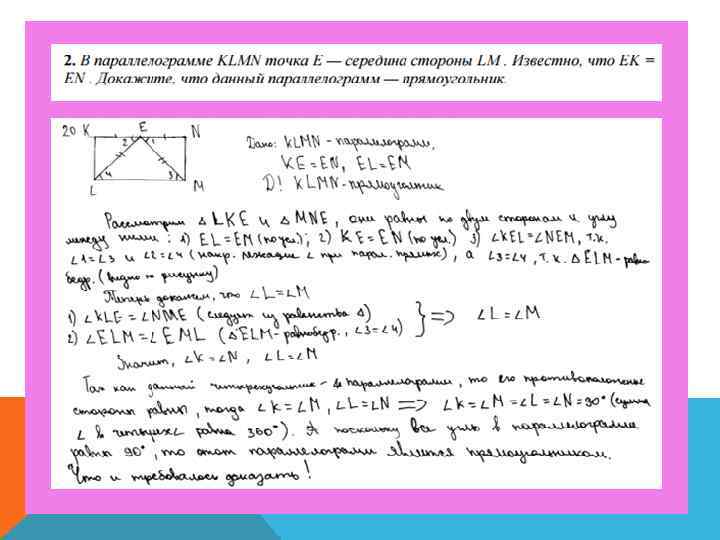 2. В параллелограмме KLMN точка E — середина стороны LM . Известно, что EK =
EN . Докажите, что данный параллелограмм — прямоугольник.
20 K E N
2 1
4 3
L M
Дано: KLMN - параллелограмм,
KE=EN, EL=EM
D! KLMN-прямоугольник
Рассмотрим △LKE и △MNE, они равны по двум сторонам и углу
между ними: 1) EL=EM (по усл.); 2) KE=EN (по усл.) 3) ∠KEL=∠NEM, т.к.
∠1=∠3 и ∠2=∠4 (накр. лежащие ∠ при парал. прямых), а ∠3=∠4, т.к. △ELM-равно
бедр. (видно по рисунку)
Теперь докажем, что ∠L=∠M
1) ∠KLE=∠NME (следует из равенства △)
2) ∠ELM=∠EML (△ELM-равнобедр., ∠3=∠4) } => ∠L=∠M
Значит, ∠K=∠N, ∠L=∠M
Так как данный четырехугольник - параллелограмм, то его противоположные
стороны равны, тогда ∠K=∠M, ∠L=∠N => ∠K=∠M=∠L=∠N=90° (сумма
∠ в четырех∠ равна 360°). А поскольку все углы в параллелограмме
равны 90°, то этот параллелограмм является прямоугольником.
Что и требовалось доказать!